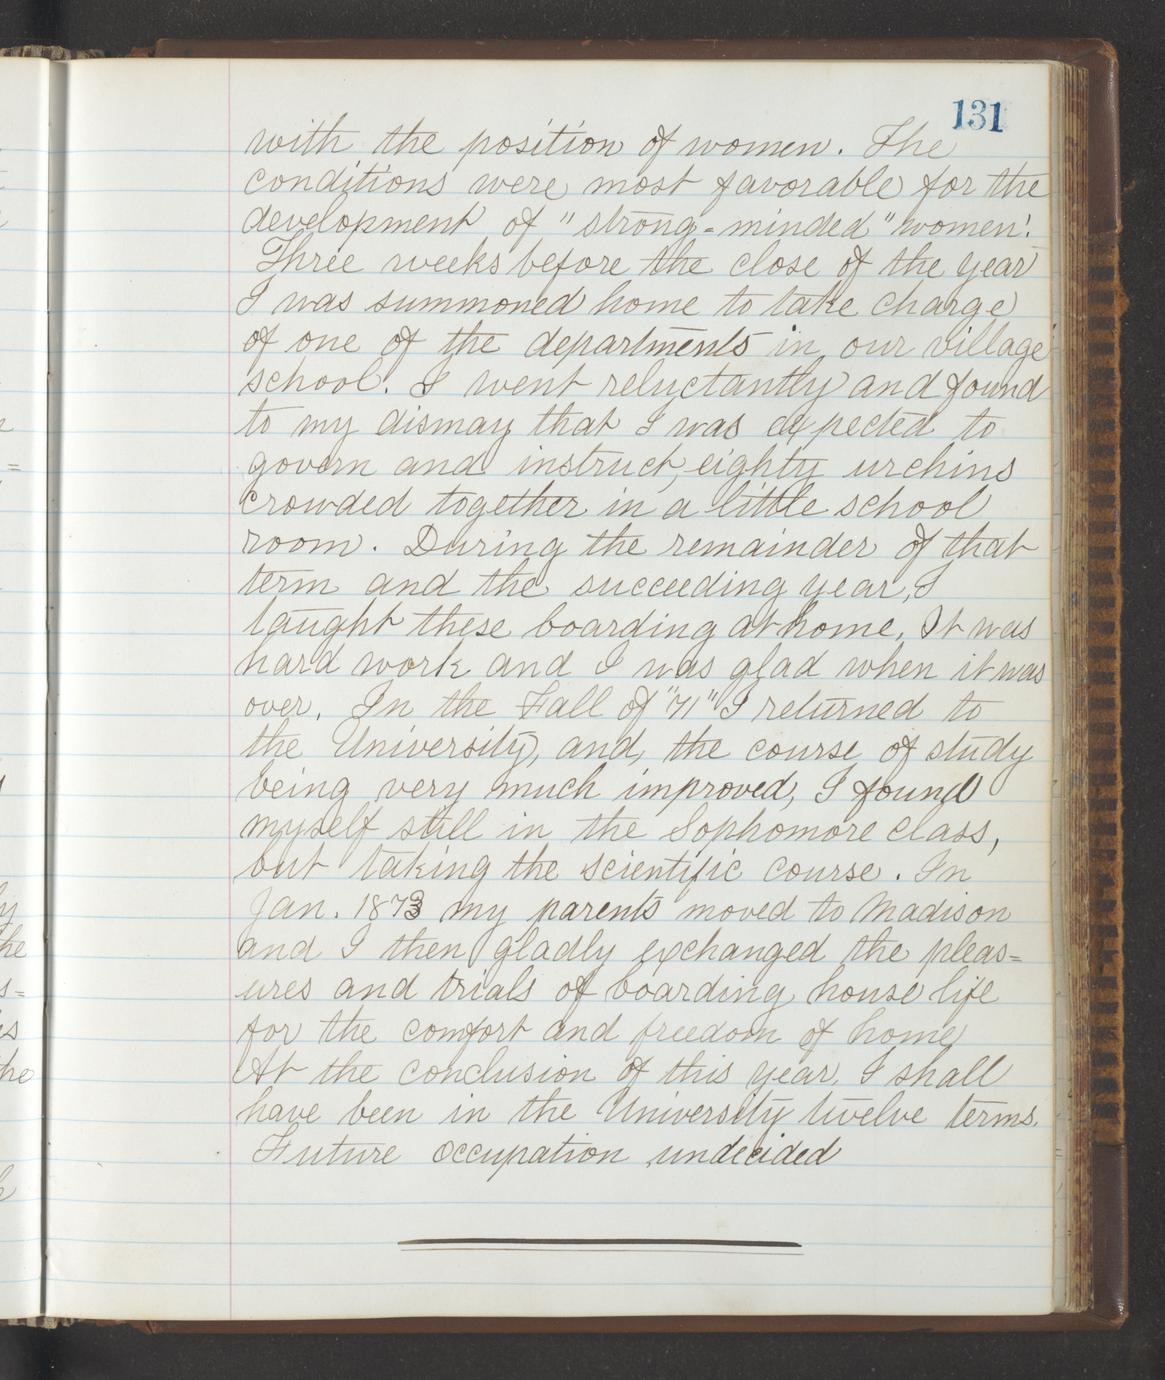 131
with the position of women. The
conditions were most favorable for the
development of "strong-minded" women'.
Three weeks before the close of the year
I was summoned home to take charge
of one of the departments in our village
school. I went reluctantly and found
to my dismay that I was expected to
govern and instruct, eighty urchins
crowded together in a little school
room. During the remainder of that
term and the succeeding year, I
taught these boarding at home. It was
hard work and I was glad when it was
over. In the Fall of "71" I returned to
the University, and, the course of study
being very much improved, I found
myself still in the Sophomore class,
but taking the scientific course. In
Jan. 1873 my parents moved to Madison
and I then gladly exchanged the pleas=
ures and trials of boarding house life
for the comfort and freedom of home
At the conclusion of this year, I shall
have been in the University twelve terms.
Future occupation undecided